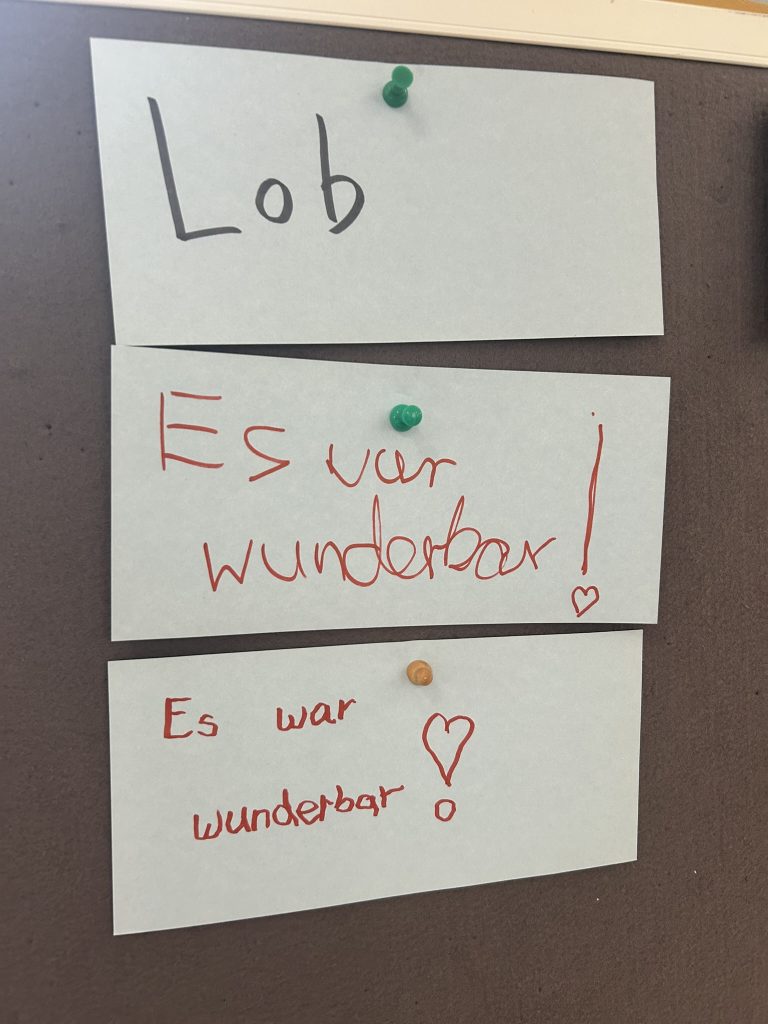 Lob
Es var
wunderbar!
Es war
wunderbar!